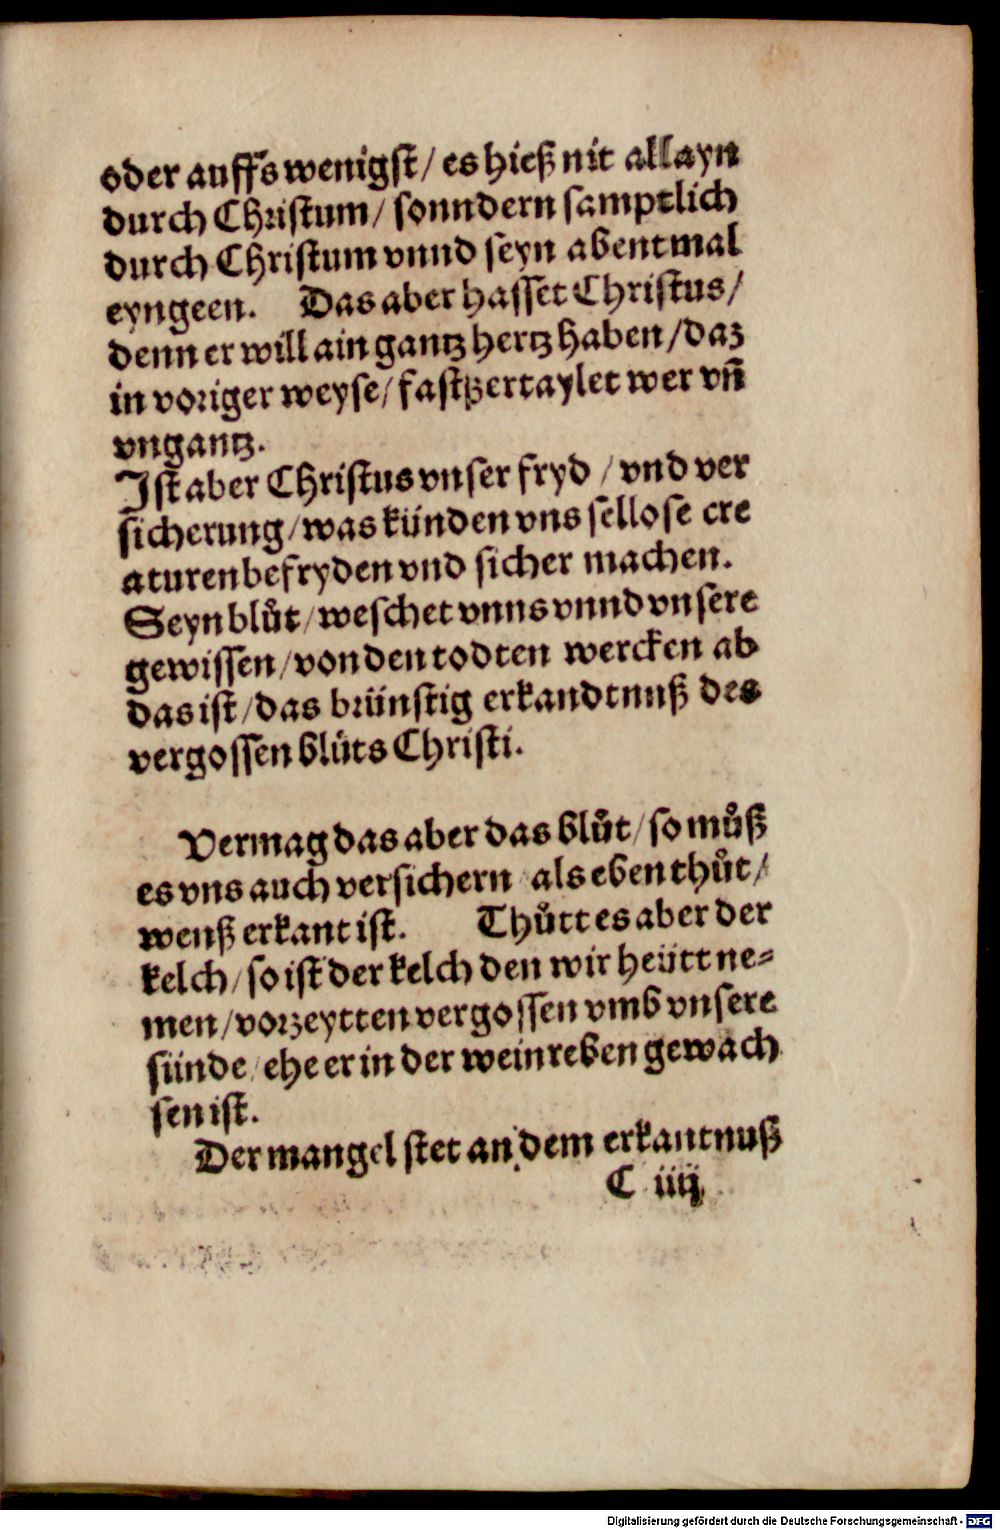 oder auffs wenigst/ es hieß nit allayn
durch Christum/ sonndern samptlich
durch Christum vnnd seyn abentmal
eyngeen. Das aber hasset Christus/
denn er will ain gantz hertz haben/ daz
in voriger weyse/ fast tzertaylet wer vñ
vngantz.
Ist aber Christus vnser fryd / vnd ver
sicherung/ was künden vns sellose cre
aturen befryden vnd sicher machen.
Seyn blůt/ weschet vnns vnnd vnsere
gewissen/ von den todten wercken ab
das ist/ das brünstig erkandtnuß des
vergossen blüts Christi.
Vermag das aber das blůt/ so můß
es vns auch versichern als eben thůt/
wenß erkant ist. Thůtt es aber der
kelch/ so ist der kelch den wir heütt ne⸗
men/ vorzeytten vergossen vmb vnsere
sünde/ ehe er in der weinreben gewach
sen ist.
Der mangel stet an dem erkantnuß
C iiij
Digitalisierung gefördert durch die Deutsche Forschungsgemeinschaft - DFG